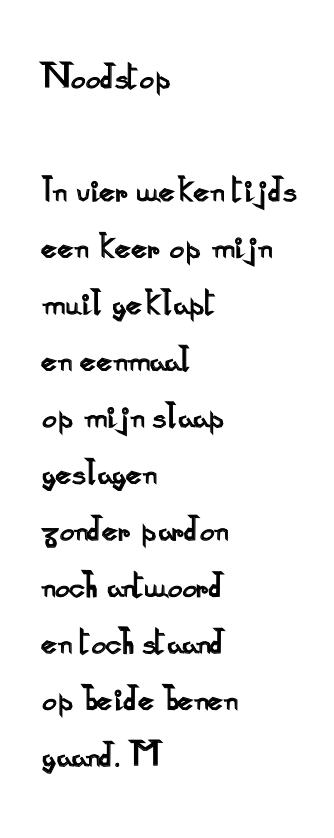 Noodstop
In vier weken tijds
een keer op mijn
muil geklapt
en eenmaal
op mijn slaap
geslagen
zonder pardon
noch antwoord
en toch staand
op beide benen
gaand. M